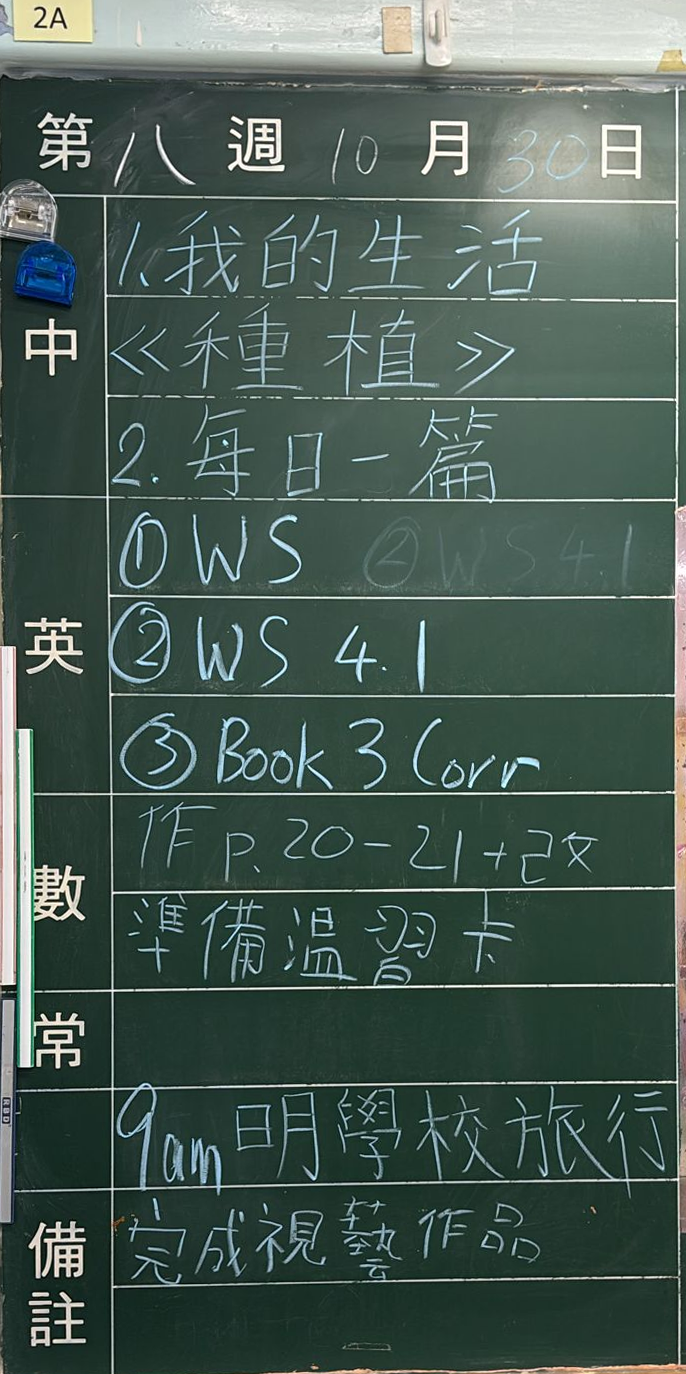 2A
第八週10月30日
中
1.我的生活
≪種植≫
2.每日一篇
英
①WS ②WS4.1
②WS 4.1
③Book 3 Corr
數
作P.20-21+改
準備溫習卡
常
9am明學校旅行
備註
完成視藝作品